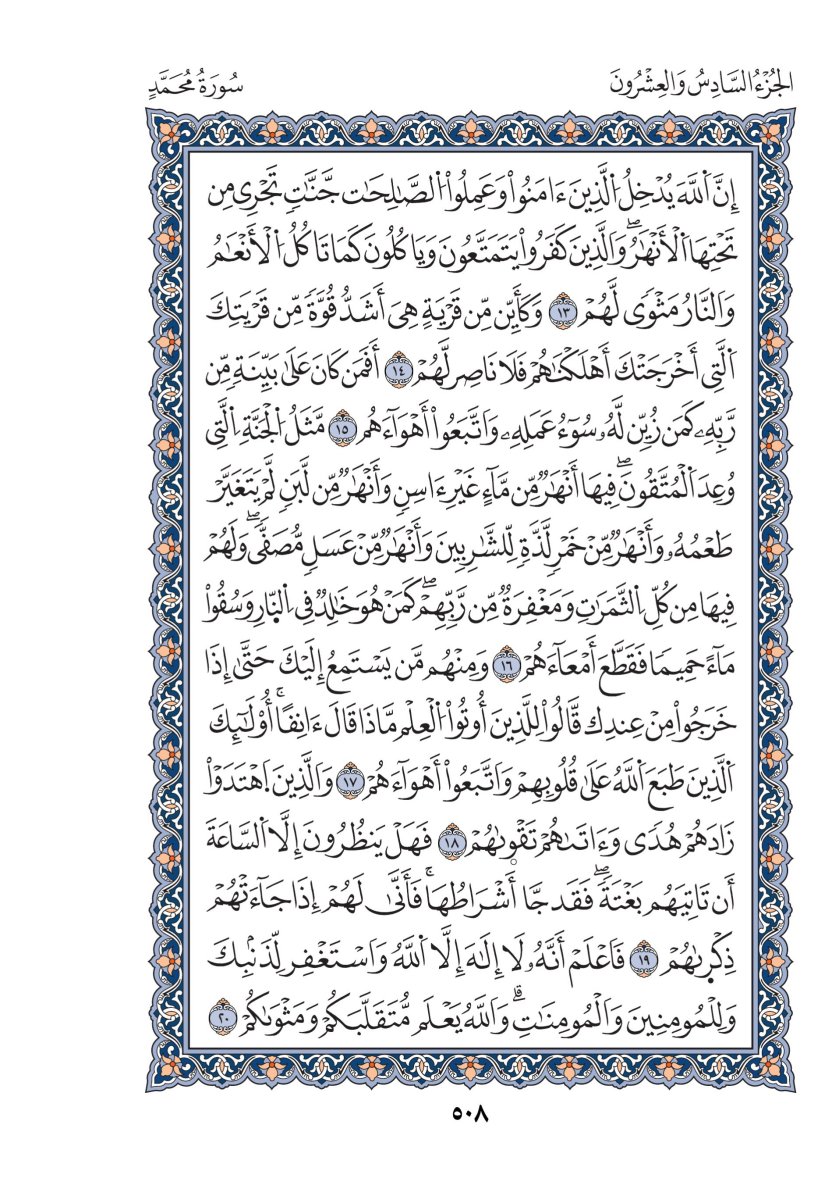 الجُزْءُ السَّادِسُ وَالعِشْرُونَ
سُورَةُ مُحَمَّدٍ
إِنَّ اَللَّهَ يُدْخِلُ اُلَّذِينَ ءَامَنُواْ وَعَمِلُواْ اُلصَّٰلِحَٰت جَّنَّٰتٍ تَجْرِى مِن
تَحْتِهَا اَلْأَنْهَٰرُۖ وَالَّذِينَ كَفَرُواْ يَتَمَتَّعُونَ وَيَاكُلُونَ كَمَا تَاكُلُ اُلْأَنْعَٰمُ
وَالنَّارُ مَثْوًى لَّهُمْ ١٣ وَكَأَيِّن مِّن قَرْيَةٍ هِىَ أَشَدُّ قُوَّةً مِّن قَرْيَتِكَ
اَلَّتِى أَخْرَجَتْكَ أَهْلَكْنَٰهُمْ فَلَا نَاصِر لَّهُمْ ١٤ أَفَمَن كَانَ عَلَىٰ بَيِّنَةٍ مِّن
رَّبِّهِۦ كَمَن زُيِّن لَّهُۥ سُوٓءُ عَمَلِهِۦ وَاتَّبَعُواْ أَهْوَآءَهُم ١٥ مَّثَلُ اُلْجَنَّةِ اِلَّتِى
وُعِدَ اَلْمُتَّقُونَۖ فِيهَا أَنْهَٰرٌ مِّن مَّآءٍ غَيْرِ ءَاسِنٍ وَأَنْهَٰرٌ مِّن لَّبَنٍ لَّمْ يَتَغَيَّرْ
طَعْمُهُۥ وَأَنْهَٰرٌ مِّنْ خَمْرٍ لَّذَّةٍ لِّلشَّٰرِبِينَ وَأَنْهَٰرٌ مِّنْ عَسَلٍ مُّصَفًّىۖ وَلَهُمْ
فِيهَا مِن كُلِّ اِلثَّمَرَٰتِ وَمَغْفِرَةٌ مِّن رَّبِّهِمْۖ كَمَنْ هُوَ خَٰلِدٌ فِى اِلنّ۪ارِ وَسُقُواْ
مَآءً حَمِيمًا فَقَطَّعَ أَمْعَآءَهُمْ ١٦ وَمِنْهُم مَّن يَسْتَمِعُ إِلَيْكَ حَتَّىٰ إِذَا
خَرَجُواْ مِنْ عِندِك قَّالُواْ لِلَّذِينَ أُوتُواْ اُلْعِلْم مَّاذَا قَالَ ءَانِفًاۚ أُوْلَٰٓئِكَ
اَلَّذِينَ طَبَعَ اَللَّهُ عَلَىٰ قُلُوبِهِمْ وَاتَّبَعُواْ أَهْوَآءَهُمْ ١٧ وَالَّذِينَ اَهْتَدَوْاْ
زَادَهُمْ هُدًى وَءَاتَىٰهُمْ تَقْو۪ىٰهُمْ ١٨ فَهَلْ يَنظُرُونَ إِلَّا اَلسَّاعَةَ
أَن تَاتِيَهُم بَغْتَةًۖ فَقَد جَّا أَشْرَاطُهَاۚ فَأَنَّىٰ لَهُمْ إِذَا جَآءَتْهُمْ
ذِكْر۪ىٰهُمْ ١٩ فَاعْلَمْ أَنَّهُۥ لَا إِلَٰهَ إِلَّا اَللَّهُ وَاسْتَغْفِر لِّذَنۢبِكَ
وَلِلْمُومِنِينَ وَالْمُومِنَٰتِۗ وَاللَّهُ يَعْلَم مُّتَقَلَّبَكُمْ وَمَثْوَىٰكُمْ ٢٠
٥٠٨